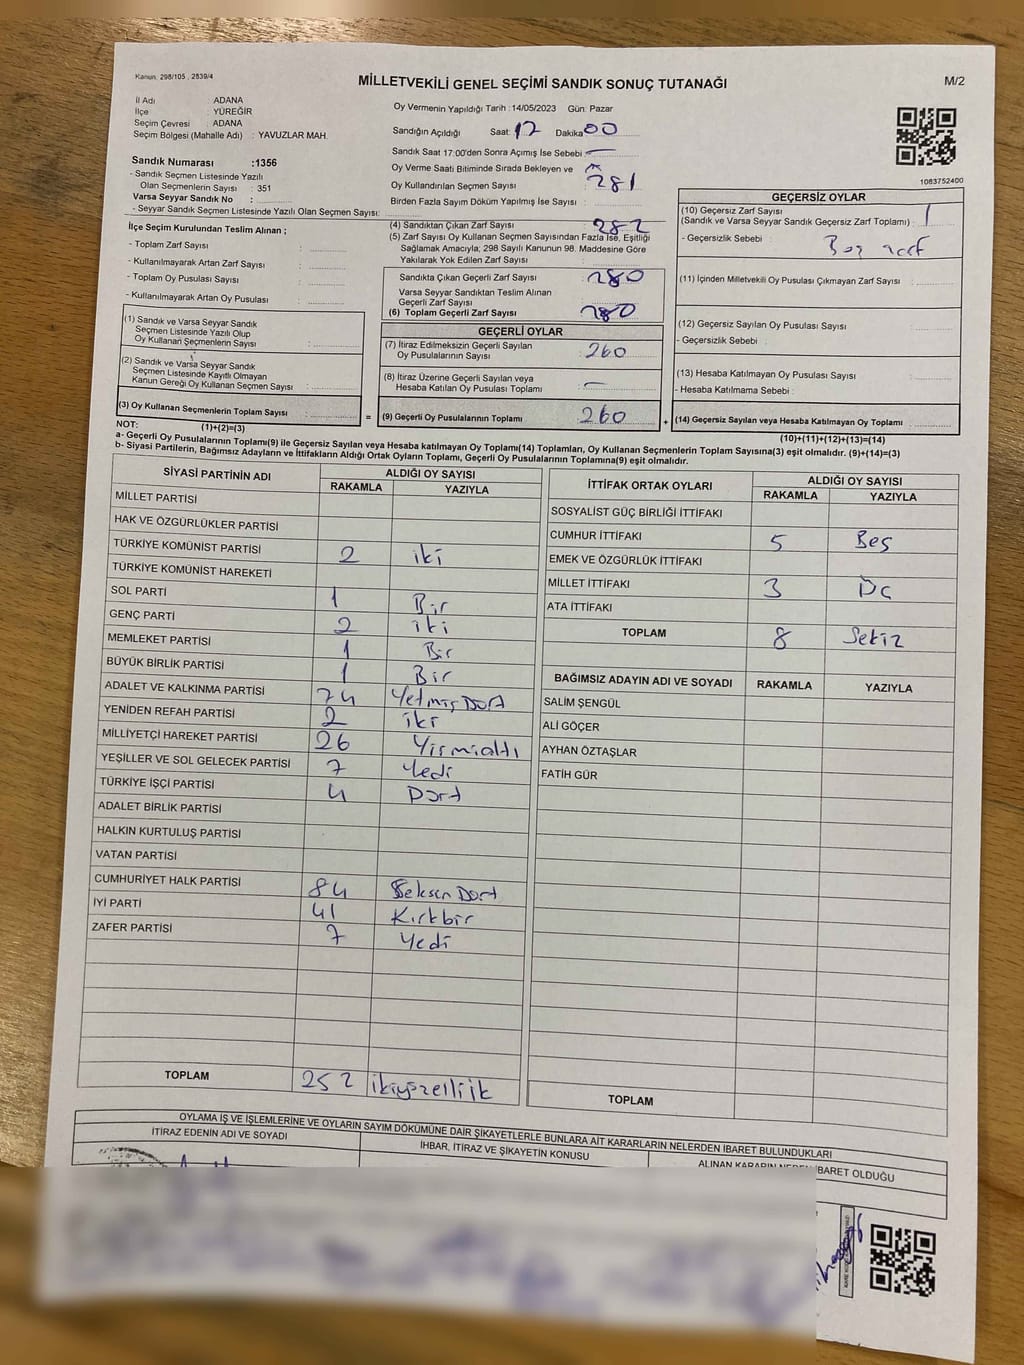 Kanun. 298/105 , 2839/4
MİLLETVEKİLİ GENEL SEÇİMİ SANDIK SONUÇ TUTANAĞI
M/2
İl Adı ADANA
İlçe : YÜREĞİR
Seçim Çevresi : ADANA
Seçim Bölgesi (Mahalle Adı) : YAVUZLAR MAH.
Sandık Numarası :1356
- Sandık Seçmen Listesinde Yazılı
Olan Seçmenlerin Sayısı : 351
Varsa Seyyar Sandık No :
- Seyyar Sandık Seçmen Listesinde Yazılı Olan Seçmen Sayısı:
Oy Vermenin Yapıldığı Tarih : 14/05/2023 Gün: Pazar
Sandığın Açıldığı Saat: 17 Dakika: 00
Sandık Saat 17:00'den Sonra Açılmış İse Sebebi : —
Oy Verme Saati Bitiminde Sırada Bekleyen ve
Oy Kullandırılan Seçmen Sayısı : 281
Birden Fazla Sayım Döküm Yapılmış İse Sayısı :
1083752400
İlçe Seçim Kurulundan Teslim Alınan ;
- Toplam Zarf Sayısı :
- Kullanılmayarak Artan Zarf Sayısı :
- Toplam Oy Pusulası Sayısı :
- Kullanılmayarak Artan Oy Pusulası :
(1) Sandık ve Varsa Seyyar Sandık
Seçmen Listesinde Yazılı Olup
Oy Kullanan Seçmenlerin Sayısı :
(2) Sandık ve Varsa Seyyar Sandık
Seçmen Listesinde Kayıtlı Olmayan
Kanun Gereği Oy Kullanan Seçmen Sayısı :
(3) Oy Kullanan Seçmenlerin Toplam Sayısı :
(1)+(2)=(3)
(4) Sandıktan Çıkan Zarf Sayısı : 282
(5) Zarf Sayısı Oy Kullanan Seçmen Sayısından Fazla İse, Eşitliği
Sağlamak Amacıyla; 298 Sayılı Kanunun 98. Maddesine Göre
Yakılarak Yok Edilen Zarf Sayısı :
Sandıkta Çıkan Geçerli Zarf Sayısı : 280
Varsa Seyyar Sandıktan Teslim Alınan
Geçerli Zarf Sayısı
(6) Toplam Geçerli Zarf Sayısı : 280
GEÇERLİ OYLAR
(7) İtiraz Edilmeksizin Geçerli Sayılan
Oy Pusulalarının Sayısı : 260
(8) İtiraz Üzerine Geçerli Sayılan veya
Hesaba Katılan Oy Pusulası Toplamı : —
= (9) Geçerli Oy Pusulalarının Toplamı : 260
GEÇERSİZ OYLAR
(10) Geçersiz Zarf Sayısı
(Sandık ve Varsa Seyyar Sandık Geçersiz Zarf Toplamı) : 1
- Geçersizlik Sebebi : Boş
(11) İçinden Milletvekili Oy Pusulası Çıkmayan Zarf Sayısı :
(12) Geçersiz Sayılan Oy Pusulası Sayısı :
- Geçersizlik Sebebi :
(13) Hesaba Katılmayan Oy Pusulası Sayısı :
- Hesaba Katılmama Sebebi :
+ (14) Geçersiz Sayılan veya Hesaba Katılmayan Oy Toplamı :
(10)+(11)+(12)+(13)=(14)
NOT:
a- Geçerli Oy Pusulalarının Toplamı(9) ile Geçersiz Sayılan veya Hesaba katılmayan Oy Toplamı(14) Toplamları, Oy Kullanan Seçmenlerin Toplam Sayısına(3) eşit olmalıdır. (9)+(14)=(3)
b- Siyasi Partilerin, Bağımsız Adayların ve İttifakların Aldığı Ortak Oyların Toplamı, Geçerli Oy Pusulalarının Toplamına(9) eşit olmalıdır.
SİYASİ PARTİNİN ADI ALDIĞI OY SAYISI
RAKAMLA YAZIYLA
MİLLET PARTİSİ
HAK VE ÖZGÜRLÜKLER PARTİSİ
TÜRKİYE KOMÜNİST PARTİSİ 2 iki
TÜRKİYE KOMÜNİST HAREKETİ
SOL PARTİ 1 Bir
GENÇ PARTİ 2 iki
MEMLEKET PARTİSİ 1 Bir
BÜYÜK BİRLİK PARTİSİ 1 Bir
ADALET VE KALKINMA PARTİSİ 74 Yetmiş Dört
YENİDEN REFAH PARTİSİ 2 iki
MİLLİYETÇİ HAREKET PARTİSİ 26 Yirmialtı
YEŞİLLER VE SOL GELECEK PARTİSİ 7 Yedi
TÜRKİYE İŞÇİ PARTİSİ 4 Dört
ADALET BİRLİK PARTİSİ
HALKIN KURTULUŞ PARTİSİ
VATAN PARTİSİ
CUMHURİYET HALK PARTİSİ 84 Seksen Dört
İYİ PARTİ 41 Kırkbir
ZAFER PARTİSİ 7 Yedi
TOPLAM 252 ikiyüzelliik
İTTİFAK ORTAK OYLARI ALDIĞI OY SAYISI
RAKAMLA YAZIYLA
SOSYALİST GÜÇ BİRLİĞİ İTTİFAKI
CUMHUR İTTİFAKI 5 Beş
EMEK VE ÖZGÜRLÜK İTTİFAKI
MİLLET İTTİFAKI 3 Üç
ATA İTTİFAKI
TOPLAM 8 Sekiz
BAĞIMSIZ ADAYIN ADI VE SOYADI RAKAMLA YAZIYLA
SALİM ŞENGÜL
ALİ GÖÇER
AYHAN ÖZTAŞLAR
FATİH GÜR
TOPLAM
OYLAMA İŞ VE İŞLEMLERİNE VE OYLARIN SAYIM DÖKÜMÜNE DAİR ŞİKAYETLERLE BUNLARA AİT KARARLARIN NELERDEN İBARET BULUNDUKLARI
İTİRAZ EDENİN ADI VE SOYADI
İHBAR, İTİRAZ VE ŞİKAYETİN KONUSU
ALINAN KARARIN NEDEN İBARET OLDUĞU